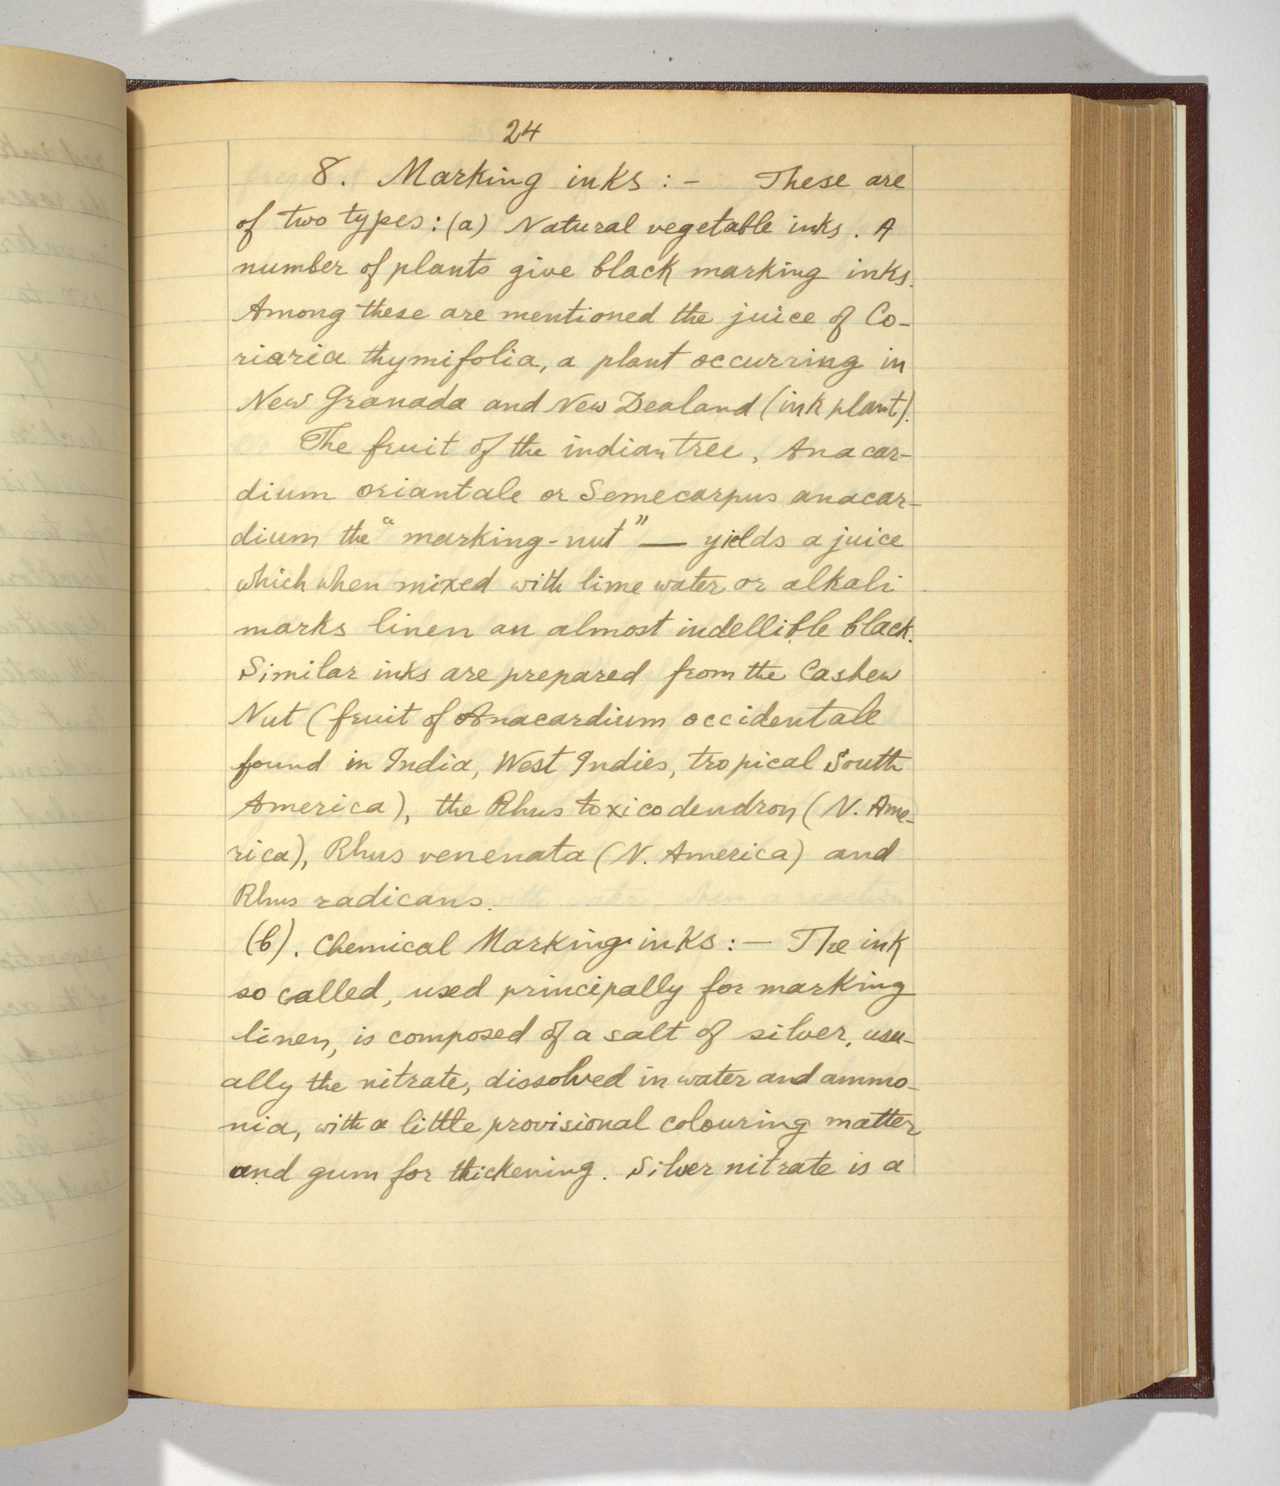 24
8. Marking inks :- These are
of two types: (a) Natural vegetable inks. A
number of plants give black marking inks.
Among these are mentioned the juice of Co-
riaria thymifolia, a plant occurring in
New Granada and New Dealand (ink plant).
The fruit of the indian tree, Anacar-
dium oriantale or Semecarpus anacar-
dium the "marking-nut" — yields a juice
which when mixed with lime water or alkali
marks linen an almost indellible black.
Similar inks are prepared from the Cashew
Nut (fruit of Anacardium occidentale
found in India, West Indies, tropical South
America), the Rhus toxicodendron (N. Ame-
rica), Rhus venenata (N. America) and
Rhus radicans.
(b). Chemical Marking inks :— The ink
so called, used principally for marking
linen, is composed of a salt of silver, usu-
ally the nitrate, dissolved in water and ammo-
nia, with a little provisional colouring matter
and gum for thickening. Silver nitrate is a